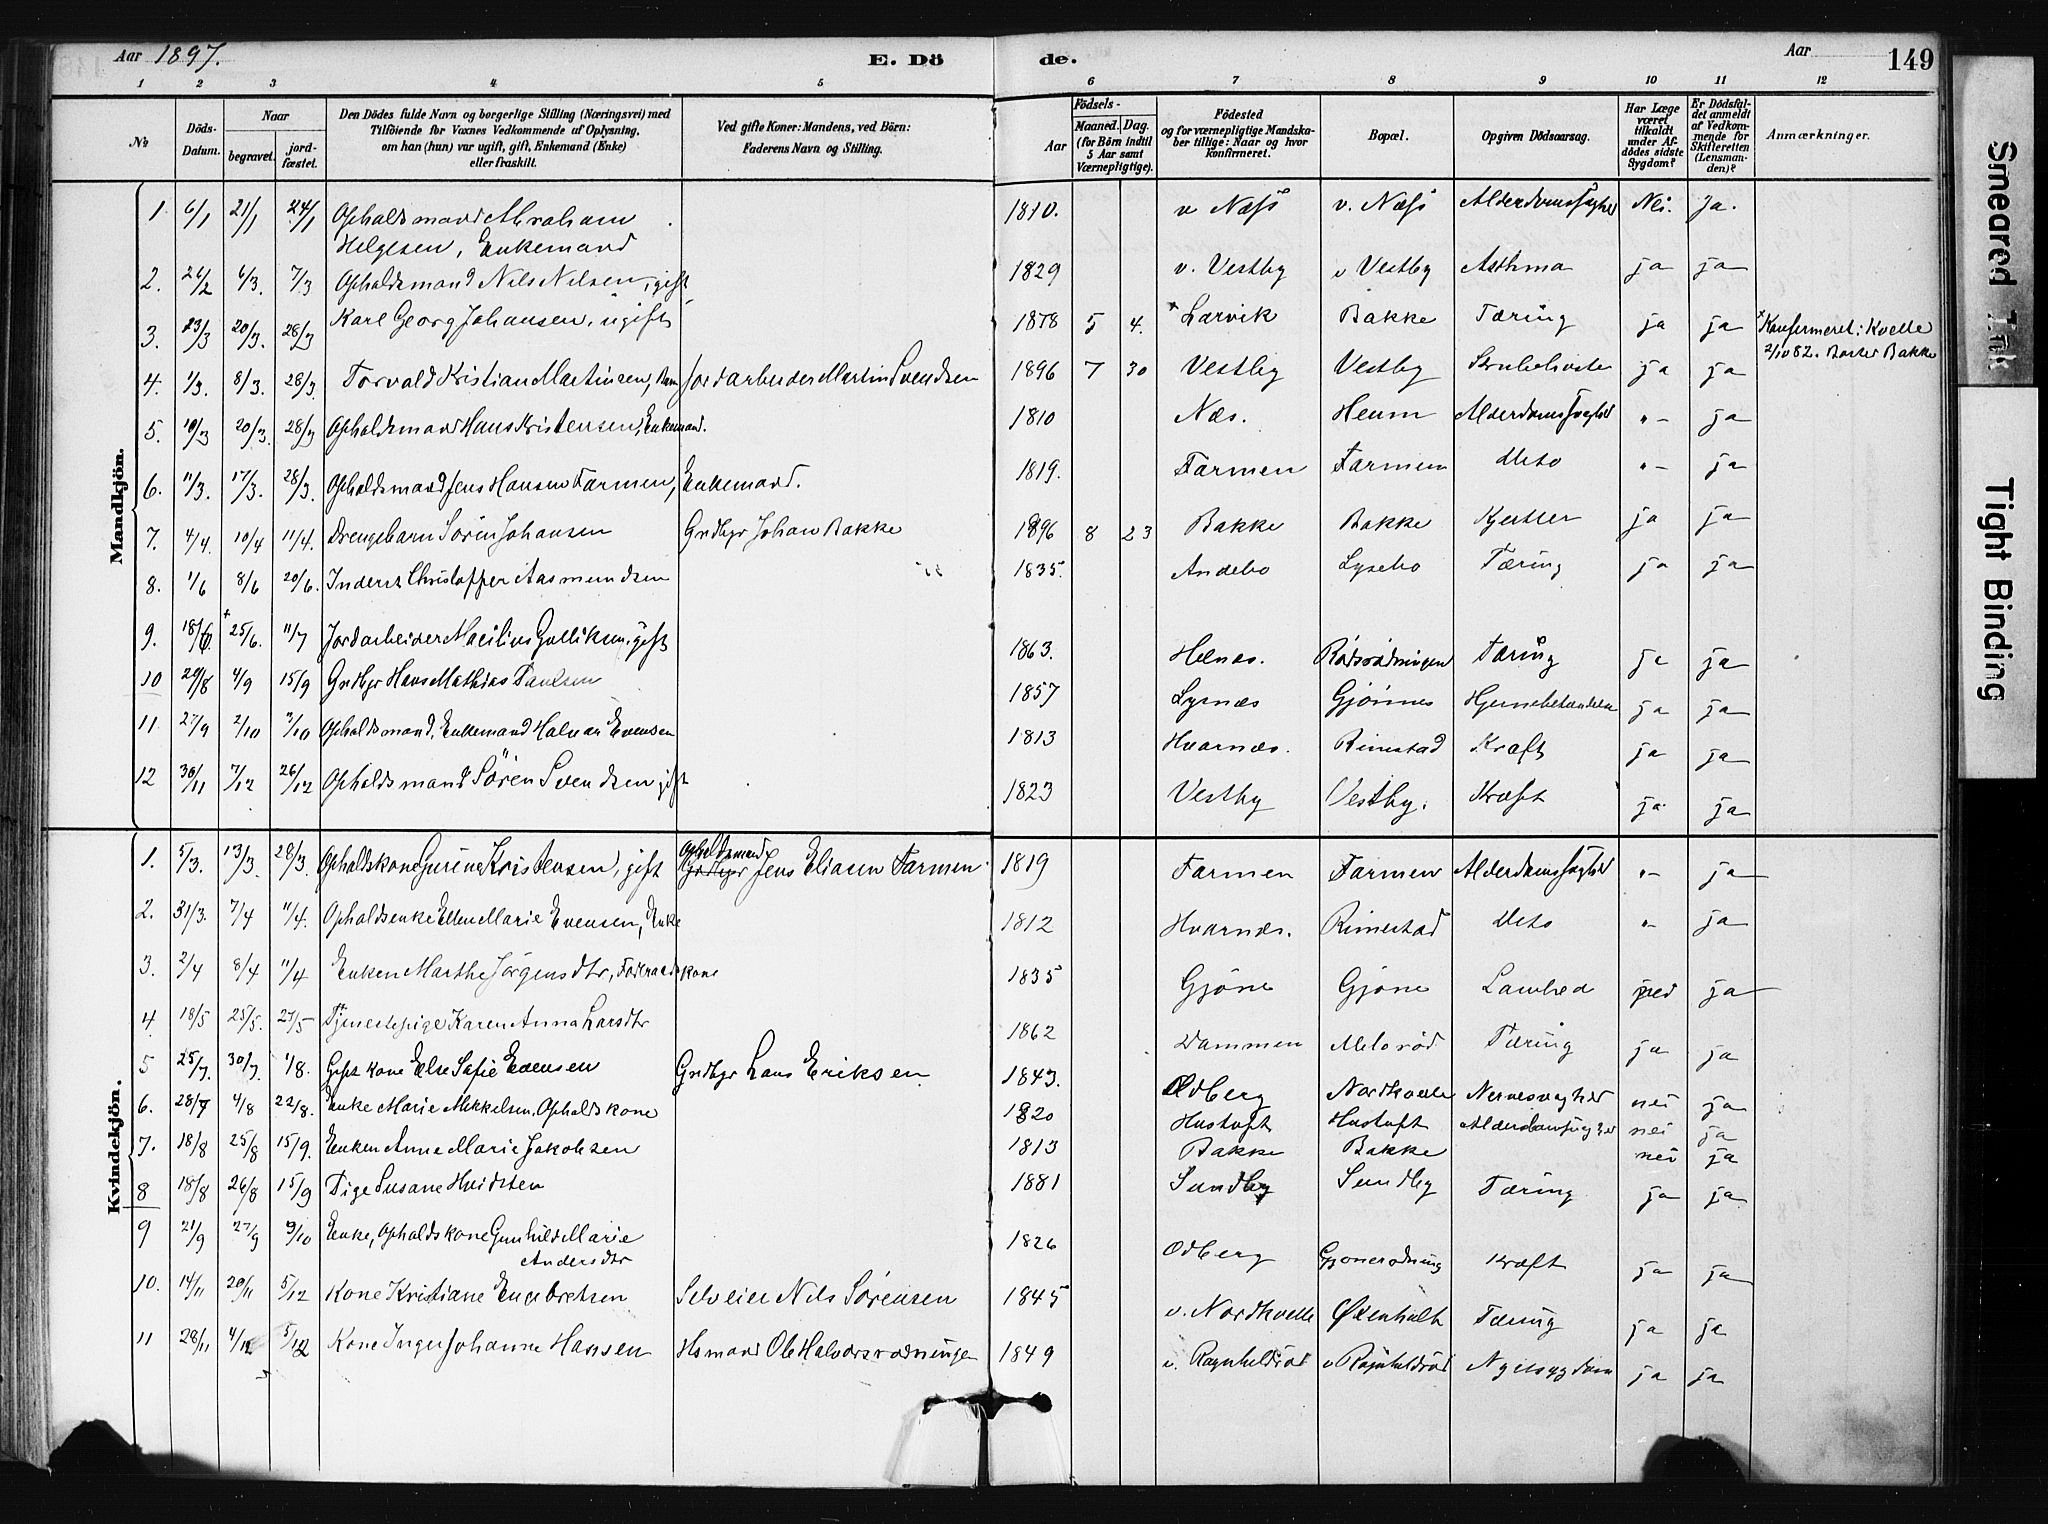 Aar 1897.
E. Dö
de.
Aar
149
1 2 3 4 5 6 7 8 9 10 11 12
No
Döds-Datum.
Naar
begravet.
jordfæstet.
Den Dödes fulde Navn og borgerlige Stilling (Næringsvei) med
Tilföiende for Voxnes Vedkommende af Oplysning,
om han (hun) var ugift, gift, Enkemand (Enke)
eller fraskilt.
Ved gifte Koner: Mandens, ved Börn:
Faderens Navn og Stilling.
Födsels-
Aar
Maaned. Dag.
(for Börn indtil
5 Aar samt
Værnepligtige).
Födested
og for værnepligtige Mandska-
ber tillige: Naar og hvor
konfirmeret.
Bopæl.
Opgiven Dödsaarsag.
Har Læge
været
tilkaldt
under Af-
dödes sidste
Sygdom?
Er Dödsfal-
det anmeldt
af Vedkom-
mende for
Skifteretten
(Lensman-
den)?
Anmærkninger.
Mandkjön.
1. 6/1 21/1 24/1 Opholdsmand Abraham 1810. v Næss v. Næss Alderdomssvaghed Nei. Ja.
Helgesen, Enkemand
2. 26/2 6/3. 7/3 Opholdsmand Nils Nilsen, gift 1829 v. Vestby v Vestby Asthma ja ja
3. 13/3 20/3. 28/3 Karl Georg Johansen, ugift 1878 5 4. + Larvik Bakke Tæring ja ja + Konfirmeret i Kvelle
2/10 82. Bakke
4. 1/3. 8/3. 28/3. Torvald Kristian Martinsen, Barn Jordarbeider Martin Svendsen 1896 7 30 Vestby Vestby Strubehoste ja ja
5. 10/3 20/3. 28/3 Opholdsmand Hans Kristensen, Enkemand. 1810 Næs. Heum Alderdomssvaghed "- ja
6. 11/3. 17/3. 28/3. Opholdsmand Jens Hansen Farmen, Enkemand. 1819. Farmen Farmen dito "- ja
7. 4/4. 10/4 11/4. Drengebarn Sörin Johansen Grdbgr Johan Bakke 1896 8 23 Bakke Bakke Kjertler ja ja
8. 1/6 8/6 20/6. Inderst Christoffer Aasmundsen 1835. Andebo Lysebo Tæring ja ja
9. 18/6 + 25/6. 11/7 Jordarbeider Gulliksen. gift 1863. Helnæs. Rödsrödningen Tæring ja ja
10 29/8 4/9 15/9 Grdbgr Hans Mathias Paulsen 1857 Lysnæs Gjönnes Hjernebetændelse ja ja
11 27/9 2/10 3/10 Opholdsmand, Enkemand Halvar Evensen 1813 Hvarnæs. Rimestad Kræft ja ja
12 30/11 7/12 26/12 Opholdsmand Sören Svendsen gift 1823 Vestby Vestby. Kræft ja ja
Kvindekjön.
1. 5/3. 13/3. 28/3. Opholdskone Gurine Kristensen, gift Opholdsmand Jens Eliasen Farmen 1819 Farmen Farmen Alderdomssvaghed "- ja
2. 31/3. 7/4 11/4. Opholdsenke Ellen Marie Evensen, Enke 1812 Hvarnæs. Rimestad dito "- ja
3. 2/4 8/4 11/4 Enken Marthe Jörgensdtr, Föderaadskone 1835 Gjöne Gjöne Lamhed ja
4. 18/5 25/5. 27/5 Tjenestepige Karen Anna Larsdtr 1862 Dammen Melsröd Tæring ja ja
5 25/7. 30/7. 1/8. Gift kone Else Sofie Evensen Grdbgr Lars Eriksen 1843. Odberg Nordkvelle Nervesvaghed nei ja
6. 28/7 4/8 22/8. Enke Marie Mikkelsen, Opholdskone 1820 Hustoft Hustoft Alderdomssvaghed nei ja
7. 18/8 25/8 15/9. Enken Anne Marie Jakobsen 1813 Bakke Bakke nei ja
8 18/8 26/8 15/9 Pige Susane Hvidsten 1881 Sundby Sundby Tæring ja ja
9 21/9 27/9 9/10 Enke, Opholdskone Gunhild Marie 1826 Odberg Gjonerodning Kræft ja ja
Andersdtr
10. 14/11 20/11 5/12 Kone Kristiane Engebretsen Selveier Nils Sörensen 1845 v. Nordkvelle Öxenholt Tæring ja ja
11 28/11 4/12 5/12 Kone Inger Johanne Hansen Hsmand Ole Halvorsrodningen 1849 v. Ragnhildröd v Ragnhildröd Nyresygdom ja ja
Smeared Ink
Tight Binding